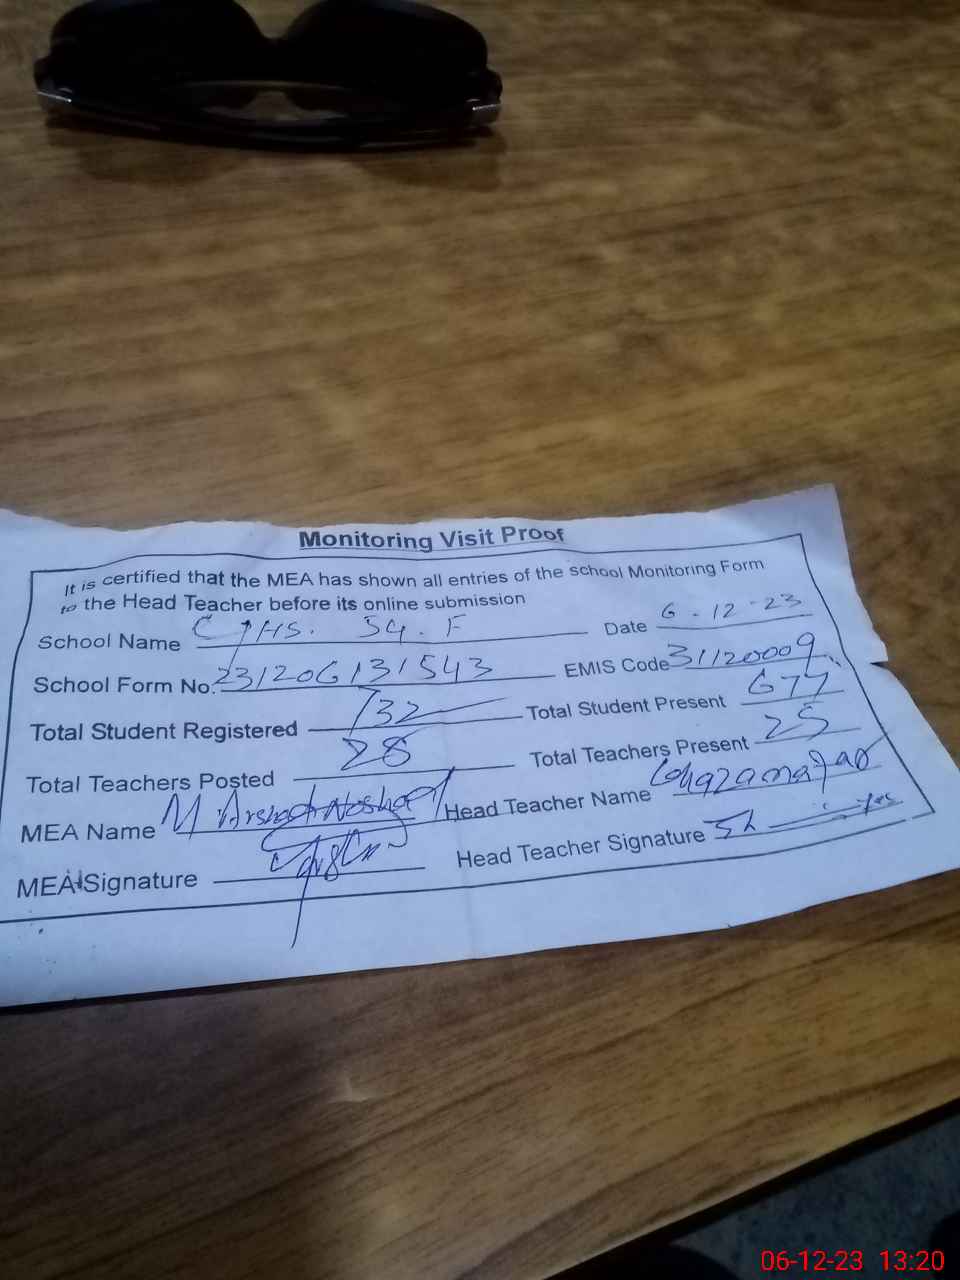 Monitoring Visit Proof
It is certified that the MEA has shown all entries of the school Monitoring Form
to the Head Teacher before its online submission
School Name GHS. 54. F Date 6-12-23
School Form No. 231206131543 EMIS Code 31120009
Total Student Registered 732 Total Student Present 677
Total Teachers Posted 28 Total Teachers Present 25
MEA Name M Arshad Head Teacher Name
MEA Signature Head Teacher Signature
06-12-23 13:20